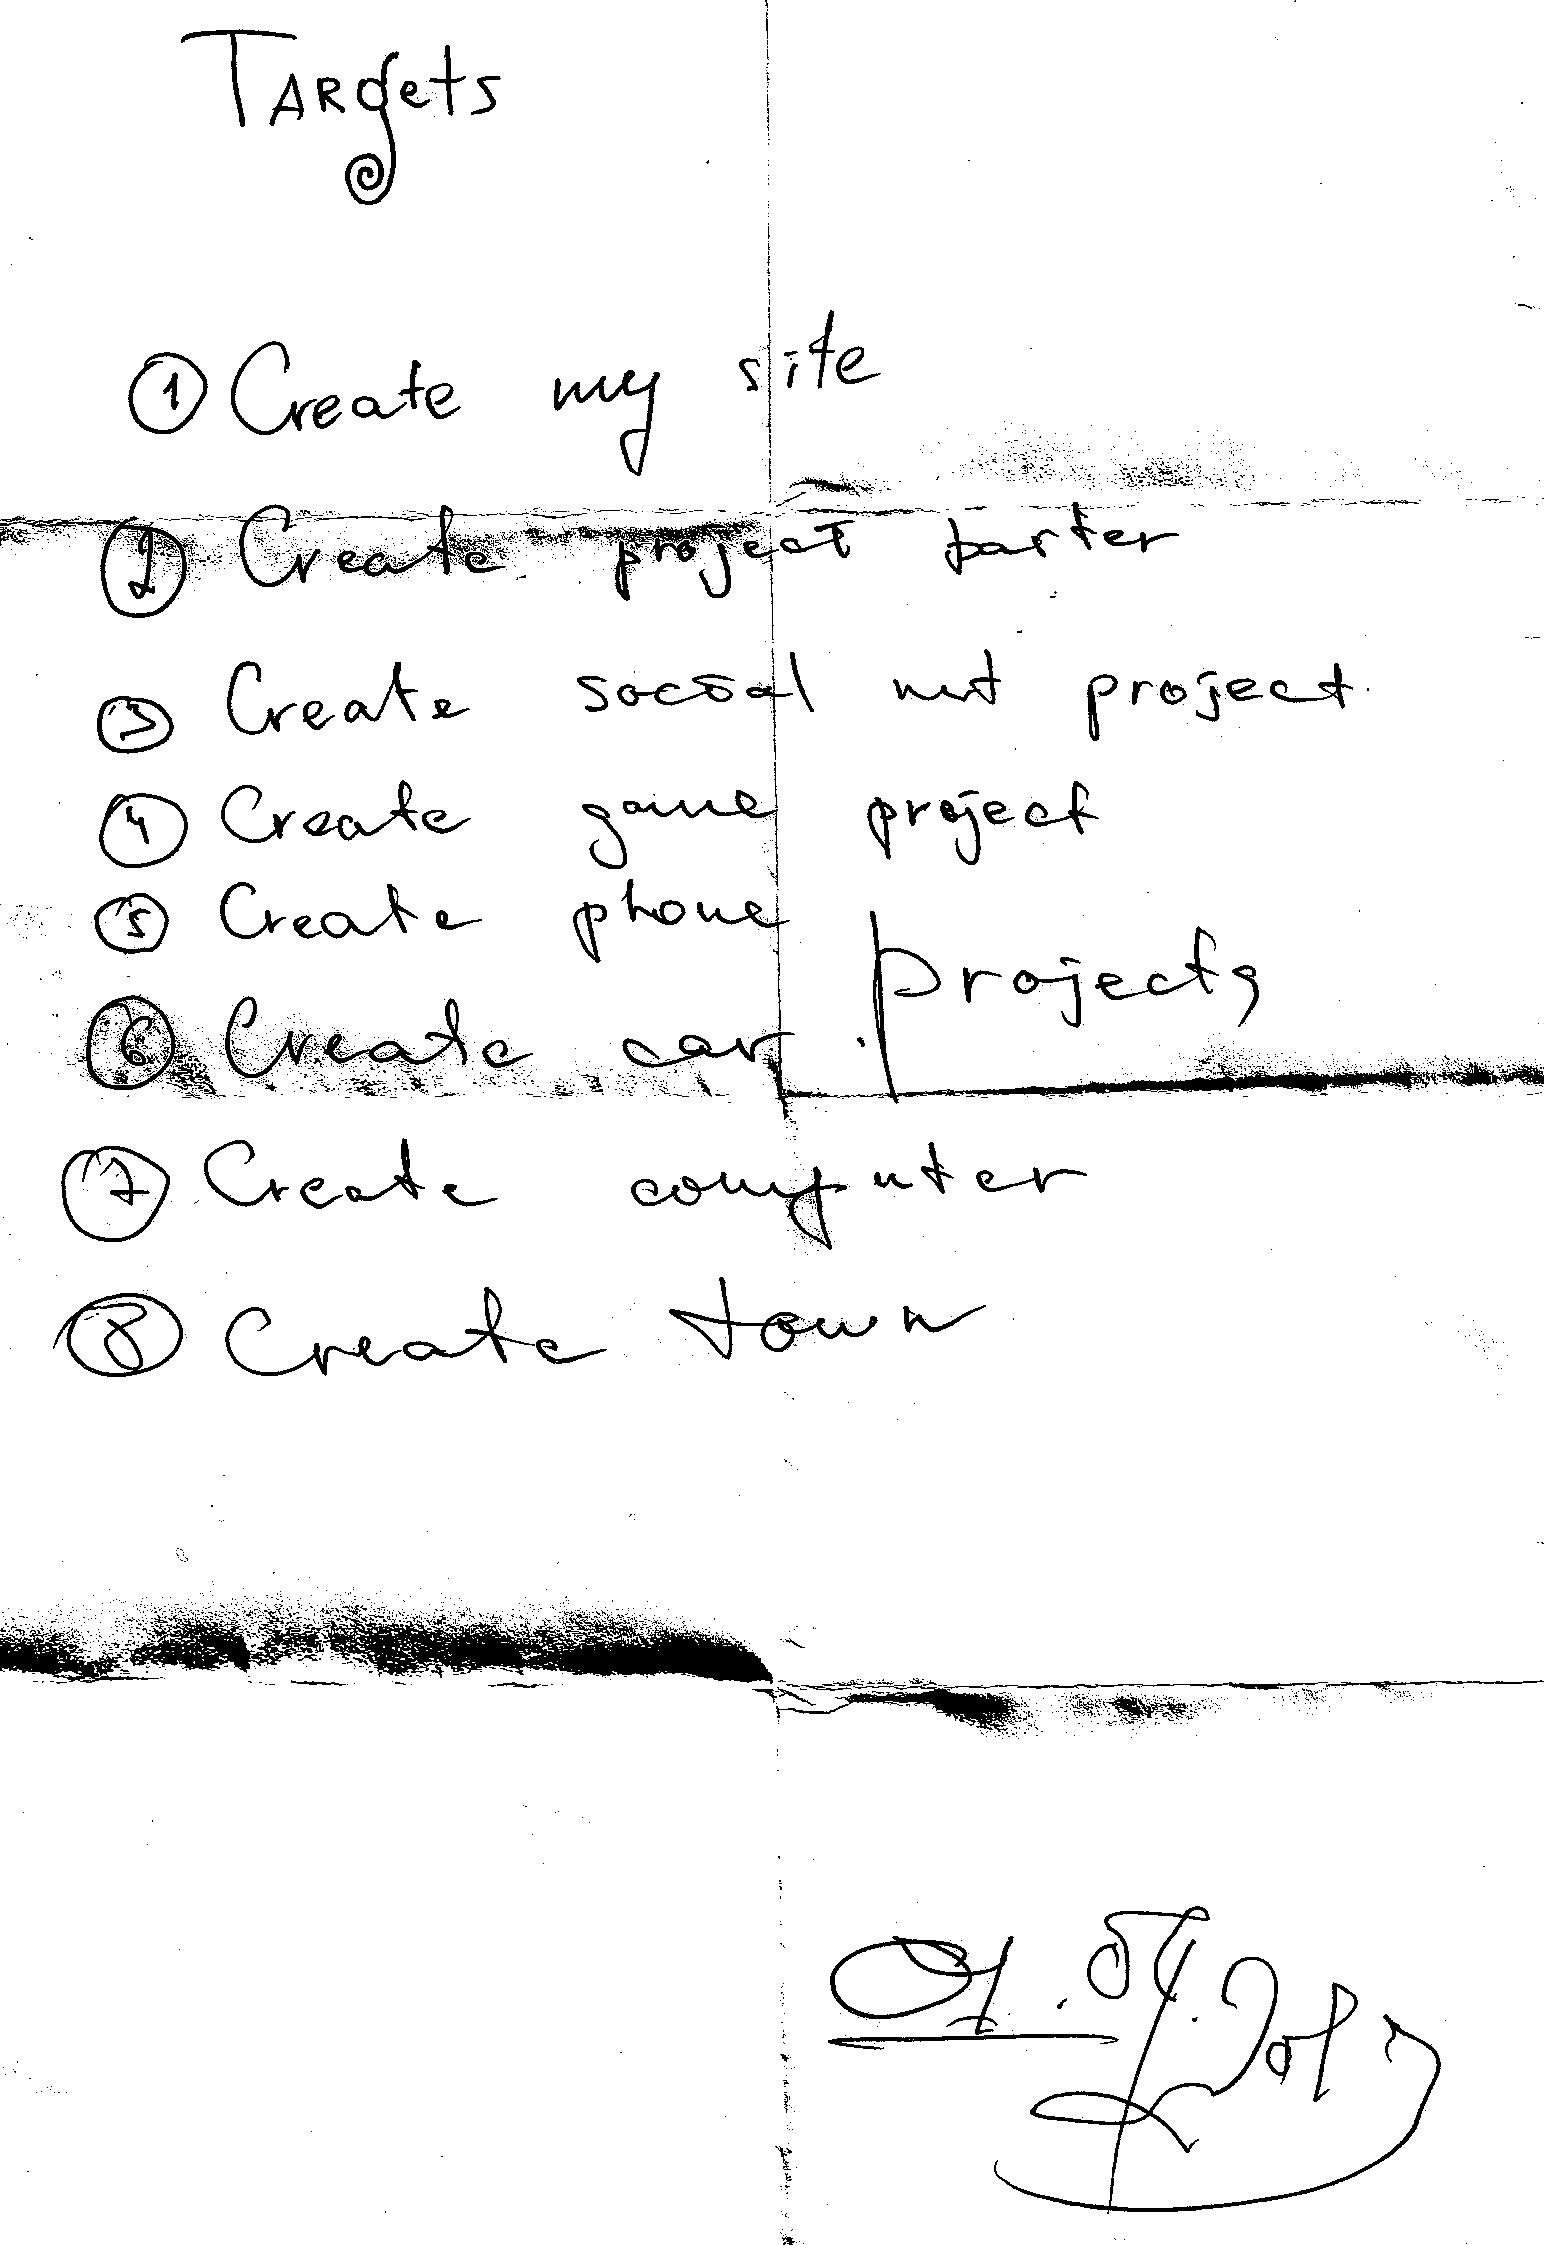 Targets
① Create my site
② Create project barter
③ Create social net project
④ Create game project
⑤ Create phone
projects
⑥ Create car
⑦ Create computer
⑧ Create town